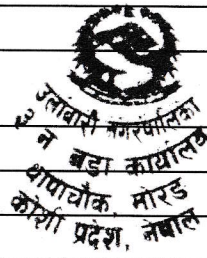 उर्लाबारी नगरपालिका
२ न बडा कार्यालय
थापाचौक, मोरङ
कोशी प्रदेश, नेपाल